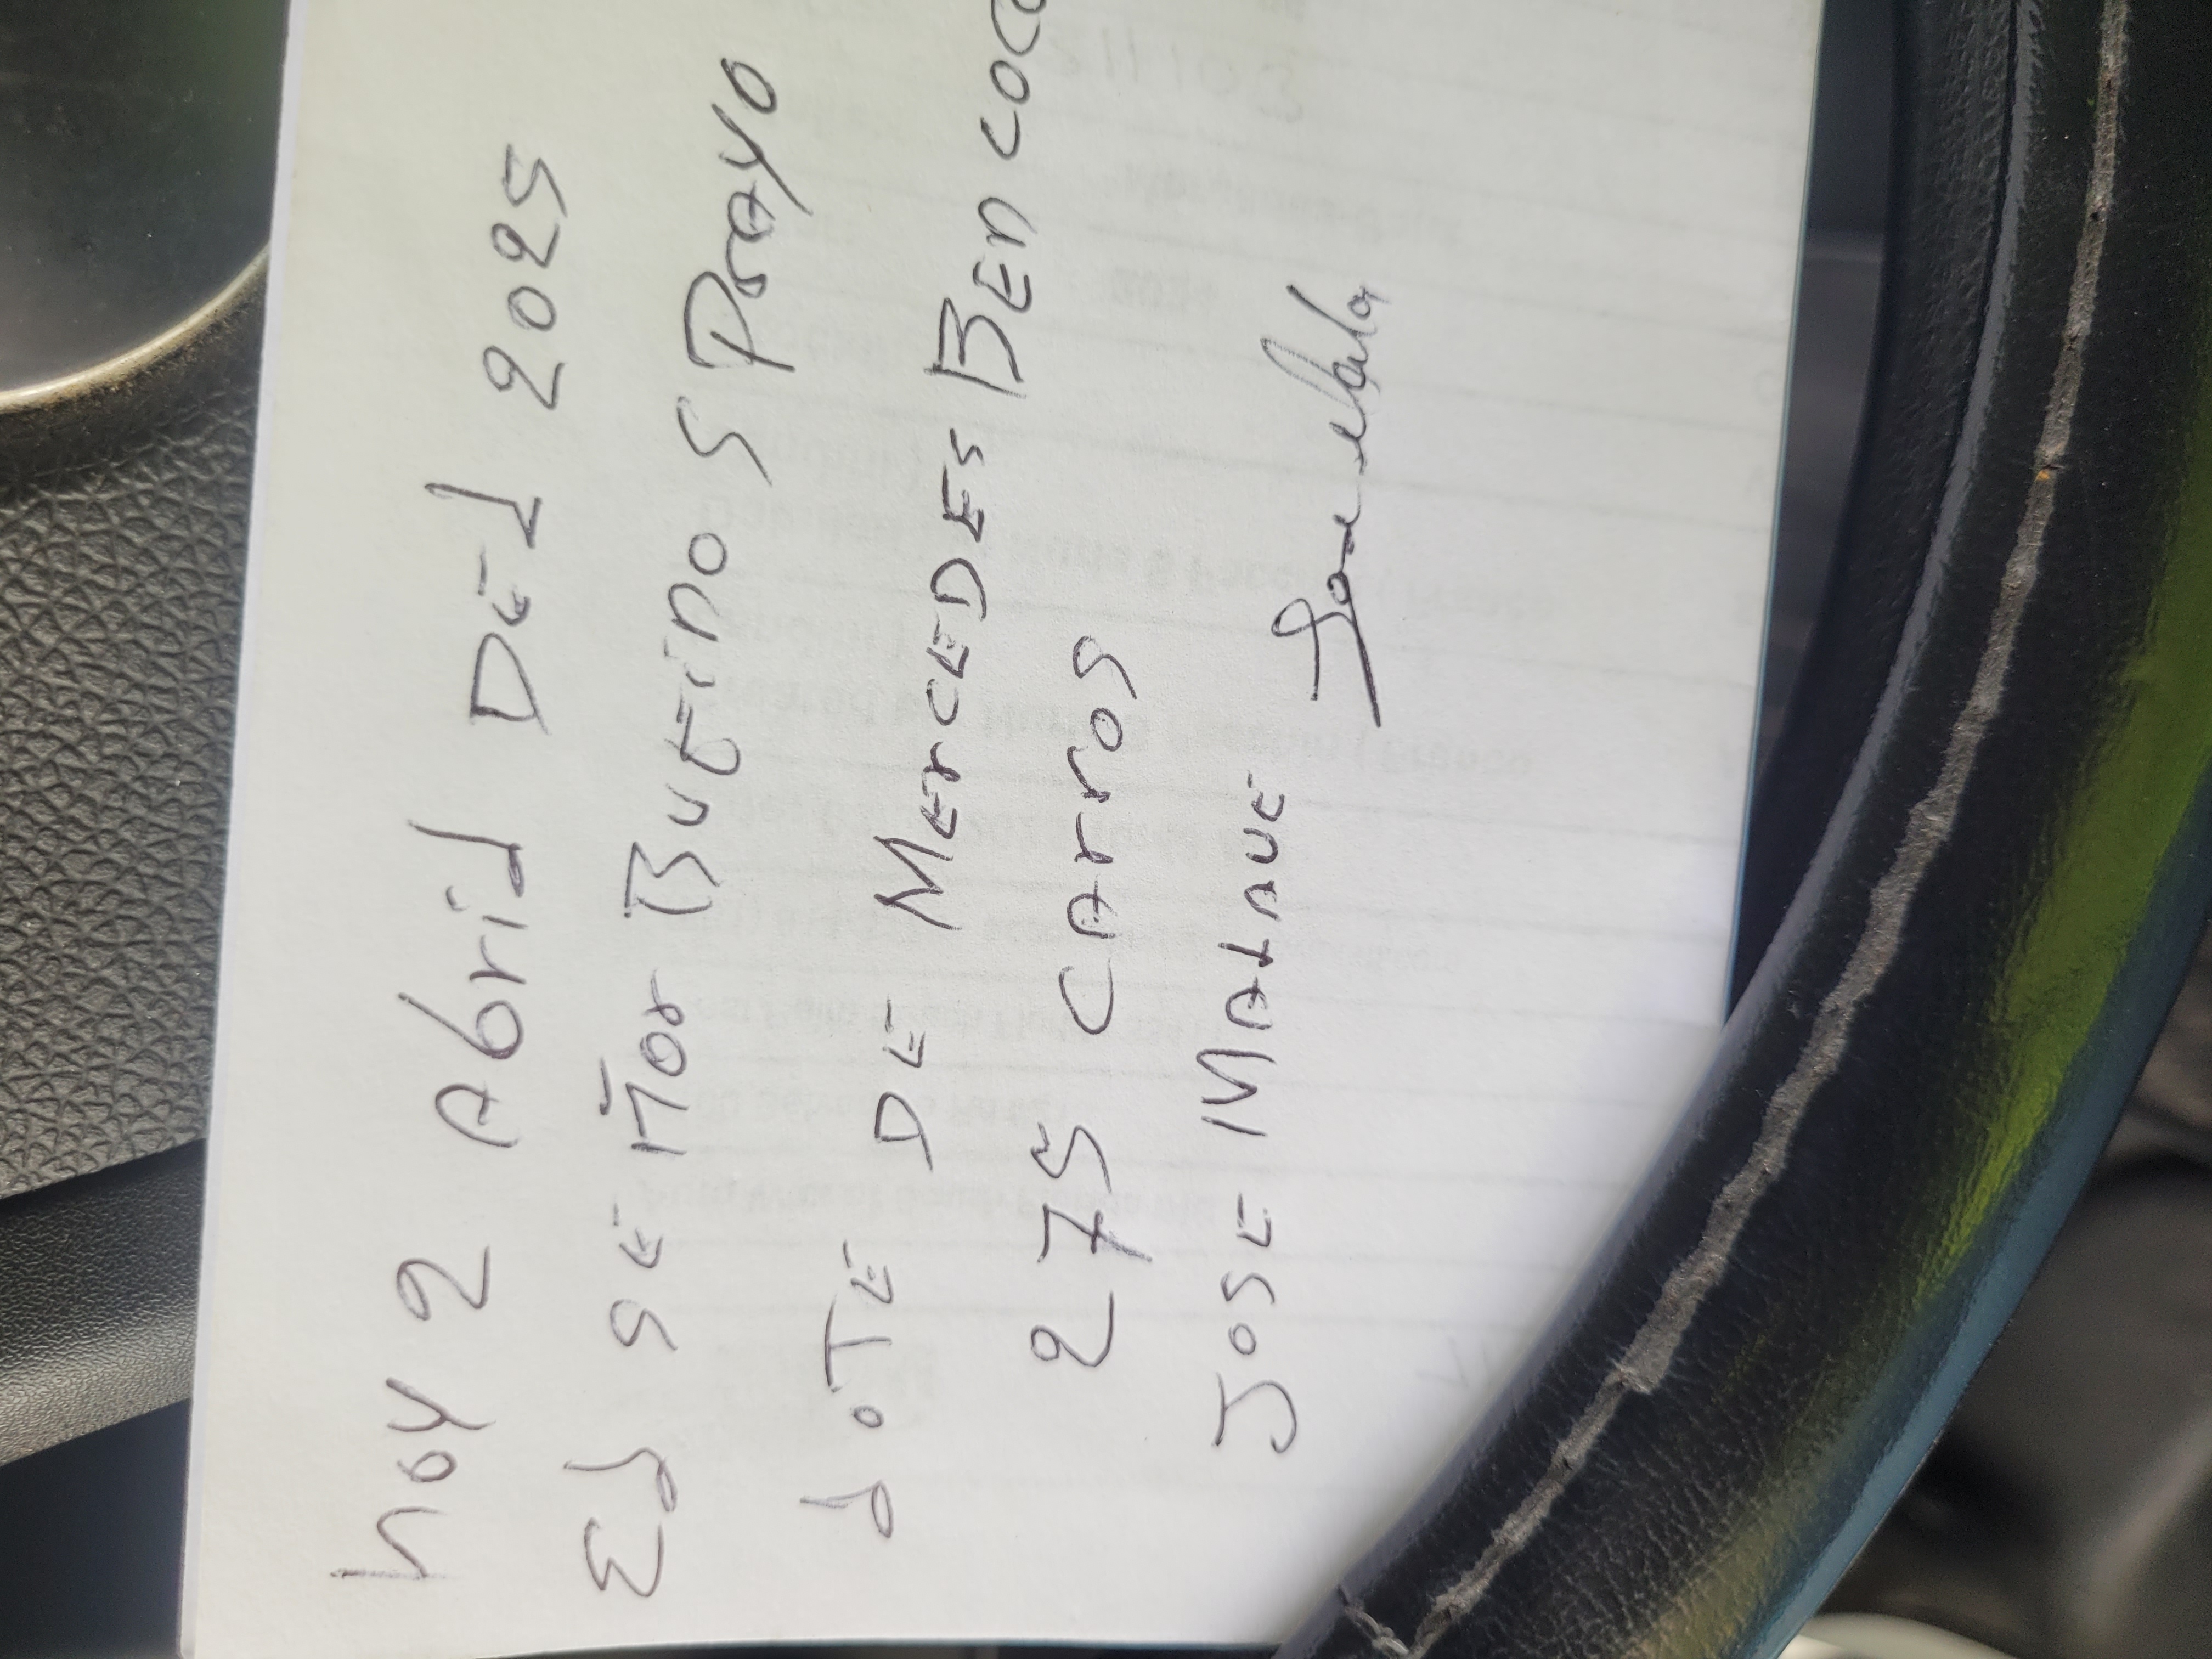 hoy 2 Abril DEl 2025
El sEÑor BuEino SPrayo
loTE DE MErcEDEs BEn coco
275 CArros
JosE MALAVE